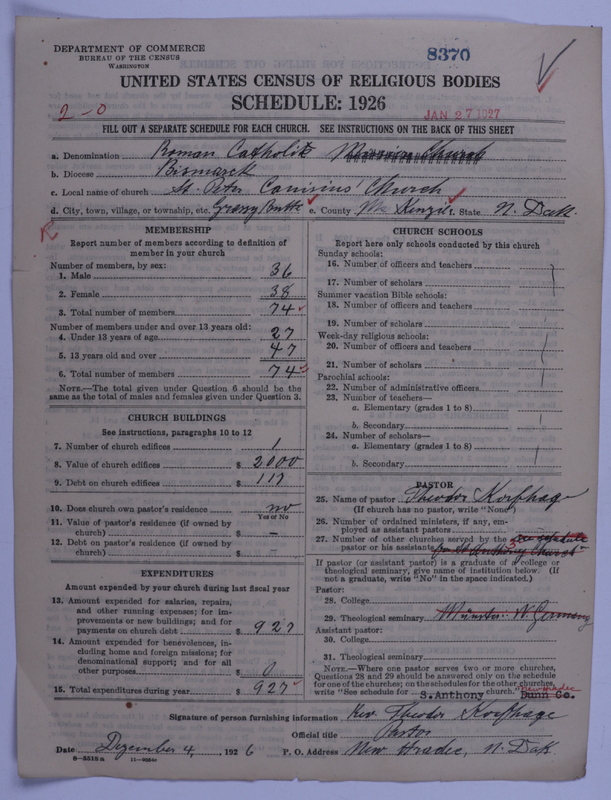 DEPARTMENT OF COMMERCE
BUREAU OF THE CENSUS
WASHINGTON
8370
UNITED STATES CENSUS OF RELIGIOUS BODIES
SCHEDULE: 1926
2-0
JAN 27 1927
FILL OUT A SEPARATE SCHEDULE FOR EACH CHURCH. SEE INSTRUCTIONS ON THE BACK OF THIS SHEET
a. Denomination Roman Catholic Church
b. Diocese Bismarck
c. Local name of church St. Peter Canisius' Church
d. City, town, village, or township, etc. Grassy Butte e. County Mc Kenzie f. State N. Dak.
MEMBERSHIP
Report number of members according to definition of
member in your church
Number of members, by sex:
1. Male 36
2. Female 38
3. Total number of members 74
Number of members under and over 13 years old:
4. Under 13 years of age 27
5. 13 years old and over 47
6. Total number of members 74
NOTE.—The total given under Question 6 should be the
same as the total of males and females given under Question 3.
CHURCH BUILDINGS
See instructions, paragraphs 10 to 12
7. Number of church edifices 1
8. Value of church edifices $ 2000
9. Debt on church edifices $ 117
10. Does church own pastor's residence no
Yes or No
11. Value of pastor's residence (if owned by
church) $ –
12. Debt on pastor's residence (if owned by
church) $ –
EXPENDITURES
Amount expended by your church during last fiscal year
13. Amount expended for salaries, repairs,
and other running expenses; for im-
provements or new buildings; and for
payments on church debt $ 927
14. Amount expended for benevolences, in-
cluding home and foreign missions; for
denominational support; and for all
other purposes $ 0
15. Total expenditures during year $ 927
CHURCH SCHOOLS
Report here only schools conducted by this church
Sunday schools:
16. Number of officers and teachers
17. Number of scholars
Summer vacation Bible schools:
18. Number of officers and teachers
19. Number of scholars
Week-day religious schools:
20. Number of officers and teachers
21. Number of scholars
Parochial schools:
22. Number of administrative officers
23. Number of teachers—
a. Elementary (grades 1 to 8)
b. Secondary
24. Number of scholars—
a. Elementary (grades 1 to 8)
b. Secondary
PASTOR
25. Name of pastor Theodor Korfhage
(If church has no pastor, write "None")
26. Number of ordained ministers, if any, em-
ployed as assistant pastors
27. Number of other churches served by the see schedule
pastor or his assistants for St Anthony Church
If pastor (or assistant pastor) is a graduate of a college or
theological seminary, give name of institution below. (If
not a graduate, write "No" in the space indicated.)
Pastor:
28. College
29. Theological seminary Münster W. Germany
Assistant pastor:
30. College
31. Theological seminary
NOTE.—Where one pastor serves two or more churches,
Questions 28 and 29 should be answered only on the schedule
for one of the churches; on the schedules for the other churches,
write "See schedule for S. Anthony church." New Hradec Dunn Co.
Signature of person furnishing information Rev. Theodor Korfhage
Official title Pastor
Date Dezember 4, 1926 P. O. Address New Hradec, N. Dak.
8—5518a 11—9834b